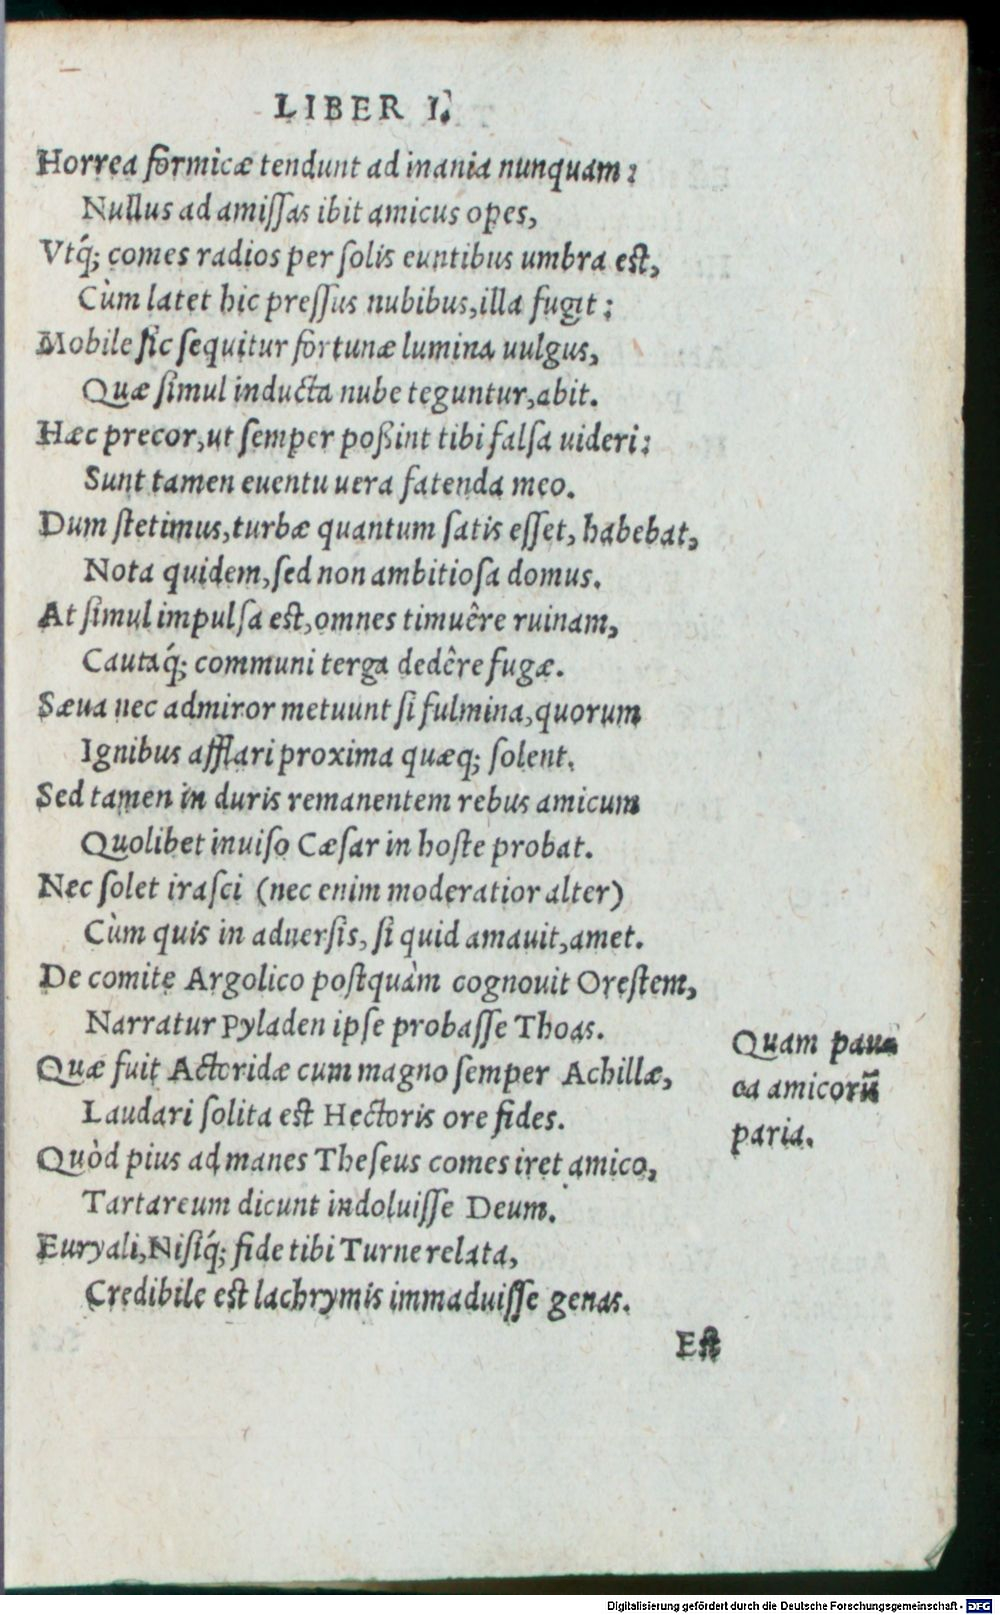 LIBER I.
Horrea formicæ tendunt ad inania nunquam:
Nullus ad amissas ibit amicus opes,
Vtq́; comes radios per solis euntibus umbra est,
Cùm latet hic pressus nubibus, illa fugit:
Mobile sic sequitur fortunæ lumina uulgus,
Quæ simul inducta nube teguntur, abit.
Hæc precor, ut semper poßint tibi falsa uideri:
Sunt tamen euentu uera fatenda meo.
Dum stetimus, turbæ quantum satis esset, habebat,
Nota quidem, sed non ambitiosa domus.
At simul impulsa est, omnes timuêre ruinam,
Cautaq́; communi terga dedêre fugæ.
Sæua nec admiror metuunt si fulmina, quorum
Ignibus afflari proxima quæq; solent.
Sed tamen in duris remanentem rebus amicum
Quolibet inuiso Cæsar in hoste probat.
Nec solet irasci (nec enim moderatior alter)
Cùm quis in aduersis, si quid amauit, amet.
De comite Argolico postquàm cognouit Orestem,
Narratur Pyladen ipse probasse Thoas.
Quæ fuit Actoridæ cum magno semper Achillæ,
Laudari solita est Hectoris ore fides.
Quòd pius ad manes Theseus comes iret amico,
Tartareum dicunt indoluisse Deum.
Euryali, Nisiq́; fide tibi Turne relata,
Credibile est lachrymis immaduisse genas.
Quam pau
ca amicorũ
paria.
Est
Digitalisierung gefördert durch die Deutsche Forschungsgemeinschaft - DFG